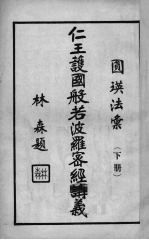 圓瑛法彙
（下册）
仁王護國般若波羅密經講義
林森題